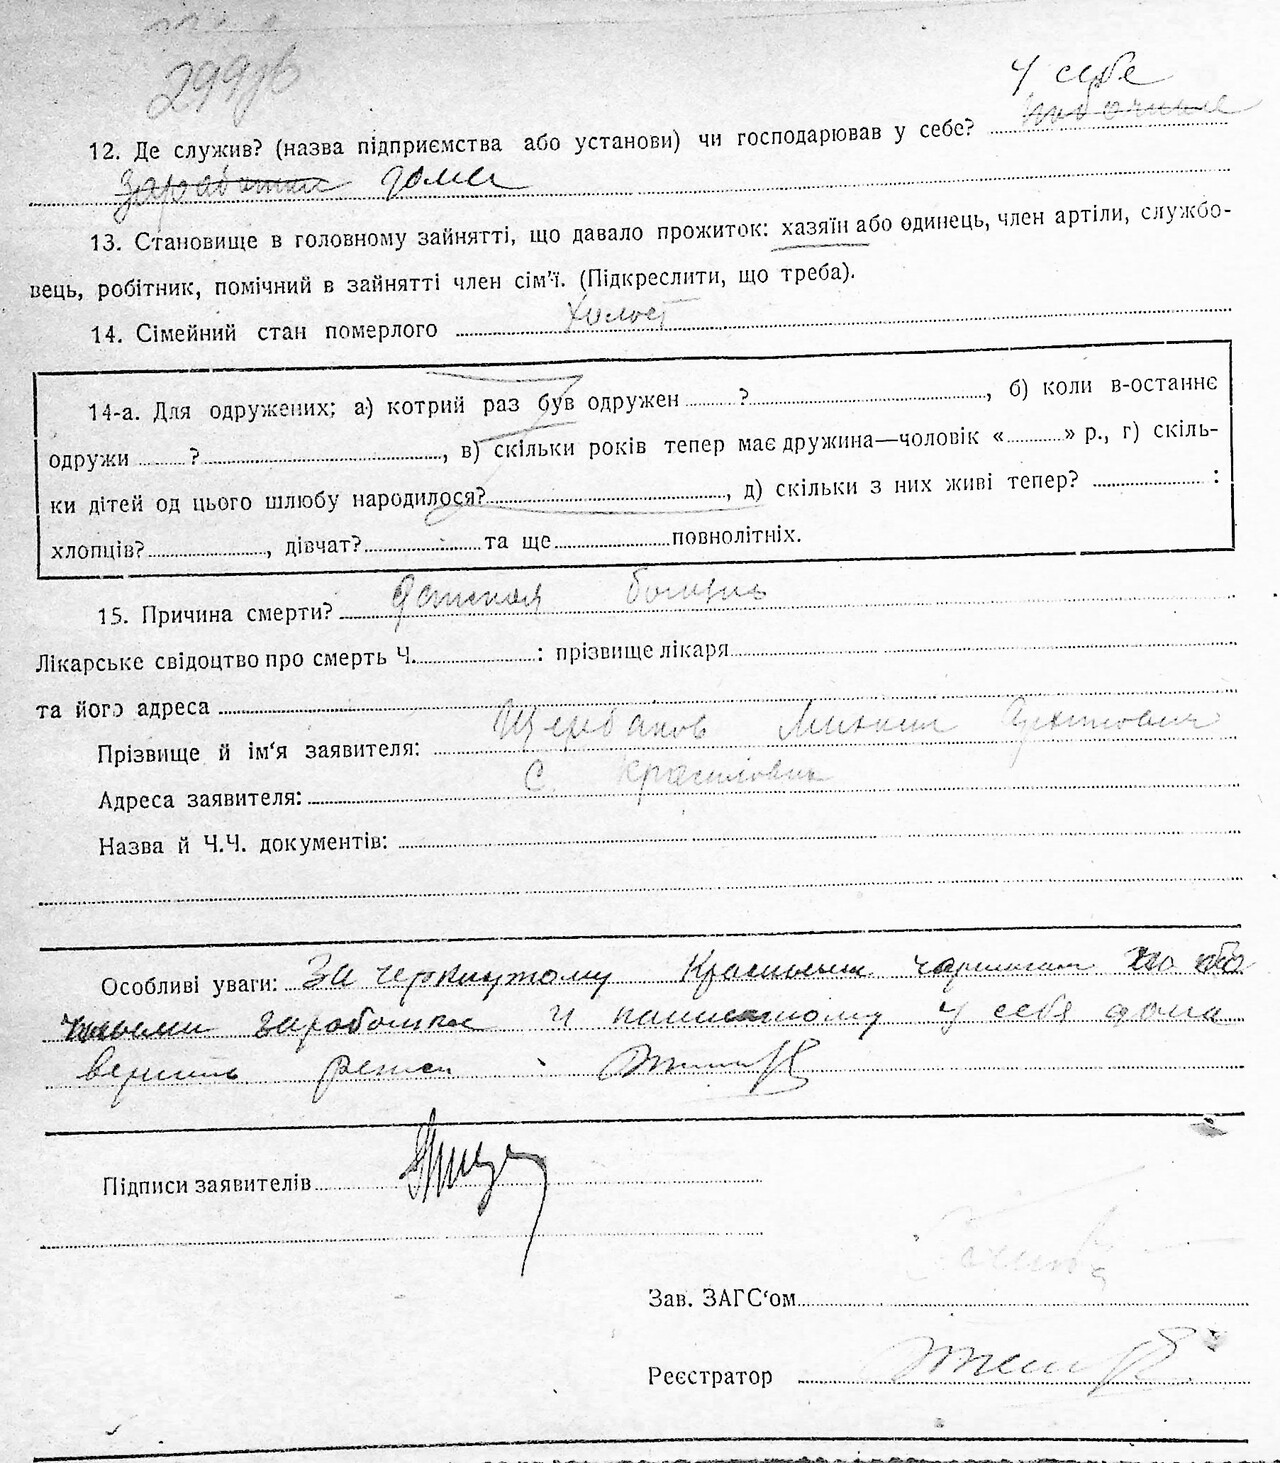 299зв
у себе
12. Де служив? (назва підприємства або установи) чи господарював у себе? побочные
заработки дома
13. Становище в головному зайнятті, що давало прожиток: хазяїн або одинець, член артіли, службо-
вець, робітник, помічний в зайнятті член сім'ї. (Підкреслити, що треба).
14. Сімейний стан померлого холост
14-а. Для одружених; а) котрий раз був одружен ?, б) коли в-останнє
одружи ?, в) скільки років тепер має дружина—чоловік « » р., г) скіль-
ки дітей од цього шлюбу народилося?, д) скільки з них живі тепер? :
хлопців?, дівчат? та ще повнолітніх.
15. Причина смерти? Детская болезнь
Лікарське свідоцтво про смерть Ч. : прізвище лікаря
та його адреса
Прізвище й ім'я заявителя: Щербаков Михаил
Адреса заявителя: С.
Назва й Ч.Ч. документів:
Особливі уваги: Зачеркнутому Красными чернилами
заработки и написаному у себя дома
верить
Підписи заявителів
Зав. ЗАГС'ом
Реєстратор